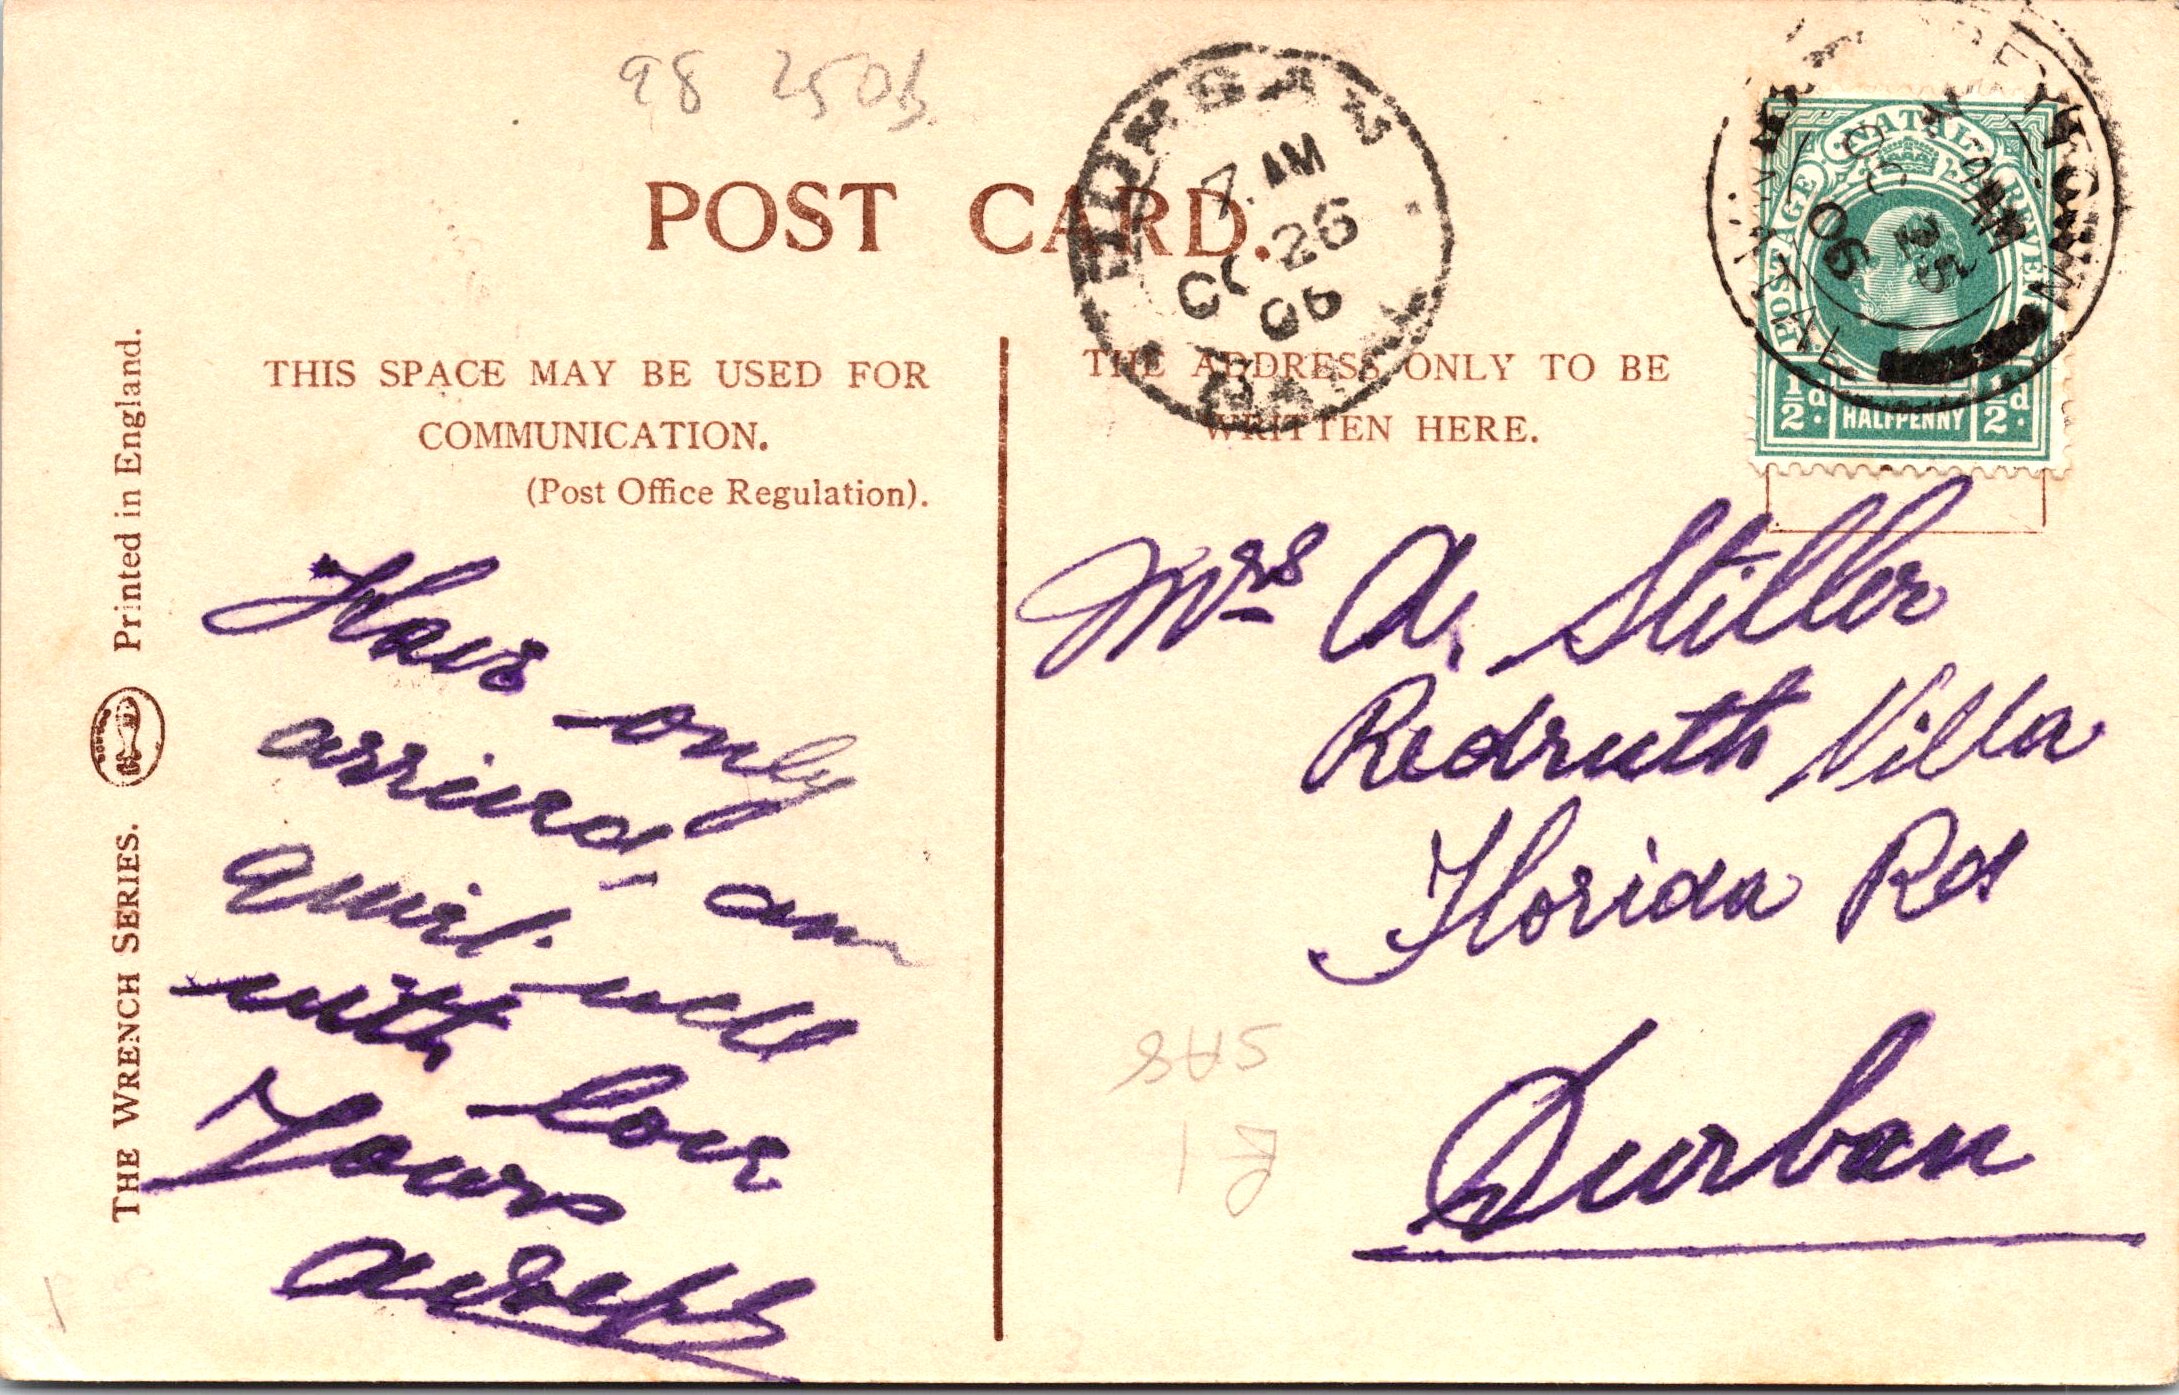 98 250b
POST CARD.
7. AM
OC 26
06
NATAL
POSTAGE REVENUE
OC 25
06
NATAL
1/2d. HALFPENNY 1/2d.
THIS SPACE MAY BE USED FOR
COMMUNICATION.
(Post Office Regulation).
THE ADDRESS ONLY TO BE
WRITTEN HERE.
Printed in England.
THE WRENCH SERIES.
Have only
arrived, am
quiet well
with love
Yours
Mrs A. Stiller
Redruth Villa
Florida Rd
Durban